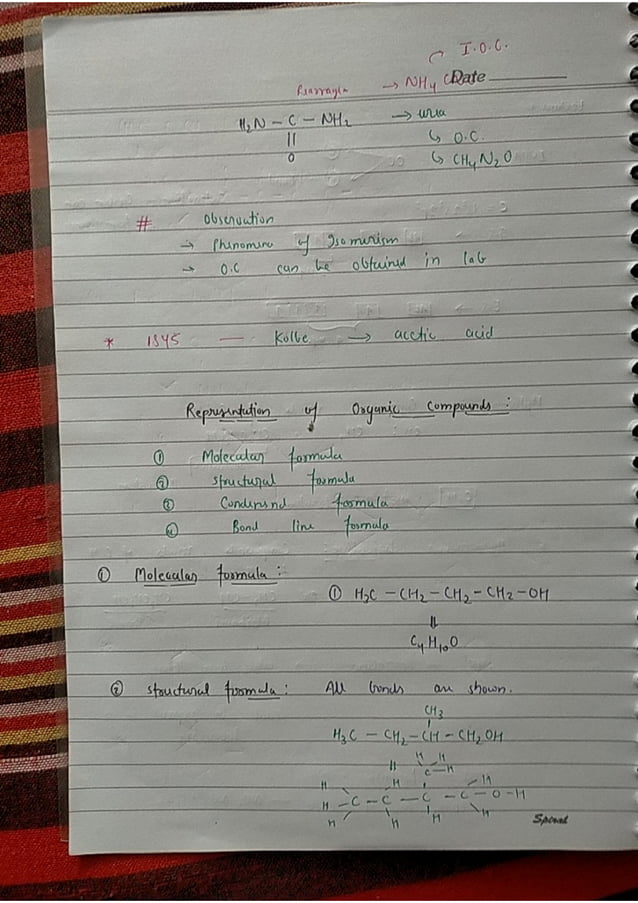 I.O.C.
→ NH4 C Date
H2N – C – NH2 → urea
||
O
↳ O.C.
↳ CH4N2O
# Observation
→ Phenomena of Isomerism
→ O.C can be obtained in lab
* 1845 — Kolbe → acetic acid
Representation of Organic Compounds :
① Molecular formula
② structural formula
③ formula
④ Bond line formula
① Molecular formula :
① H3C – CH2 – CH2 – CH2 – OH
⇓
C4H10O
② structural formula : All bonds are shown.
CH3
H3C – CH2 – CH – CH2OH
||
H H
C – H
H H H
H – C – C – C – C – O – H
H H H H
Spiral